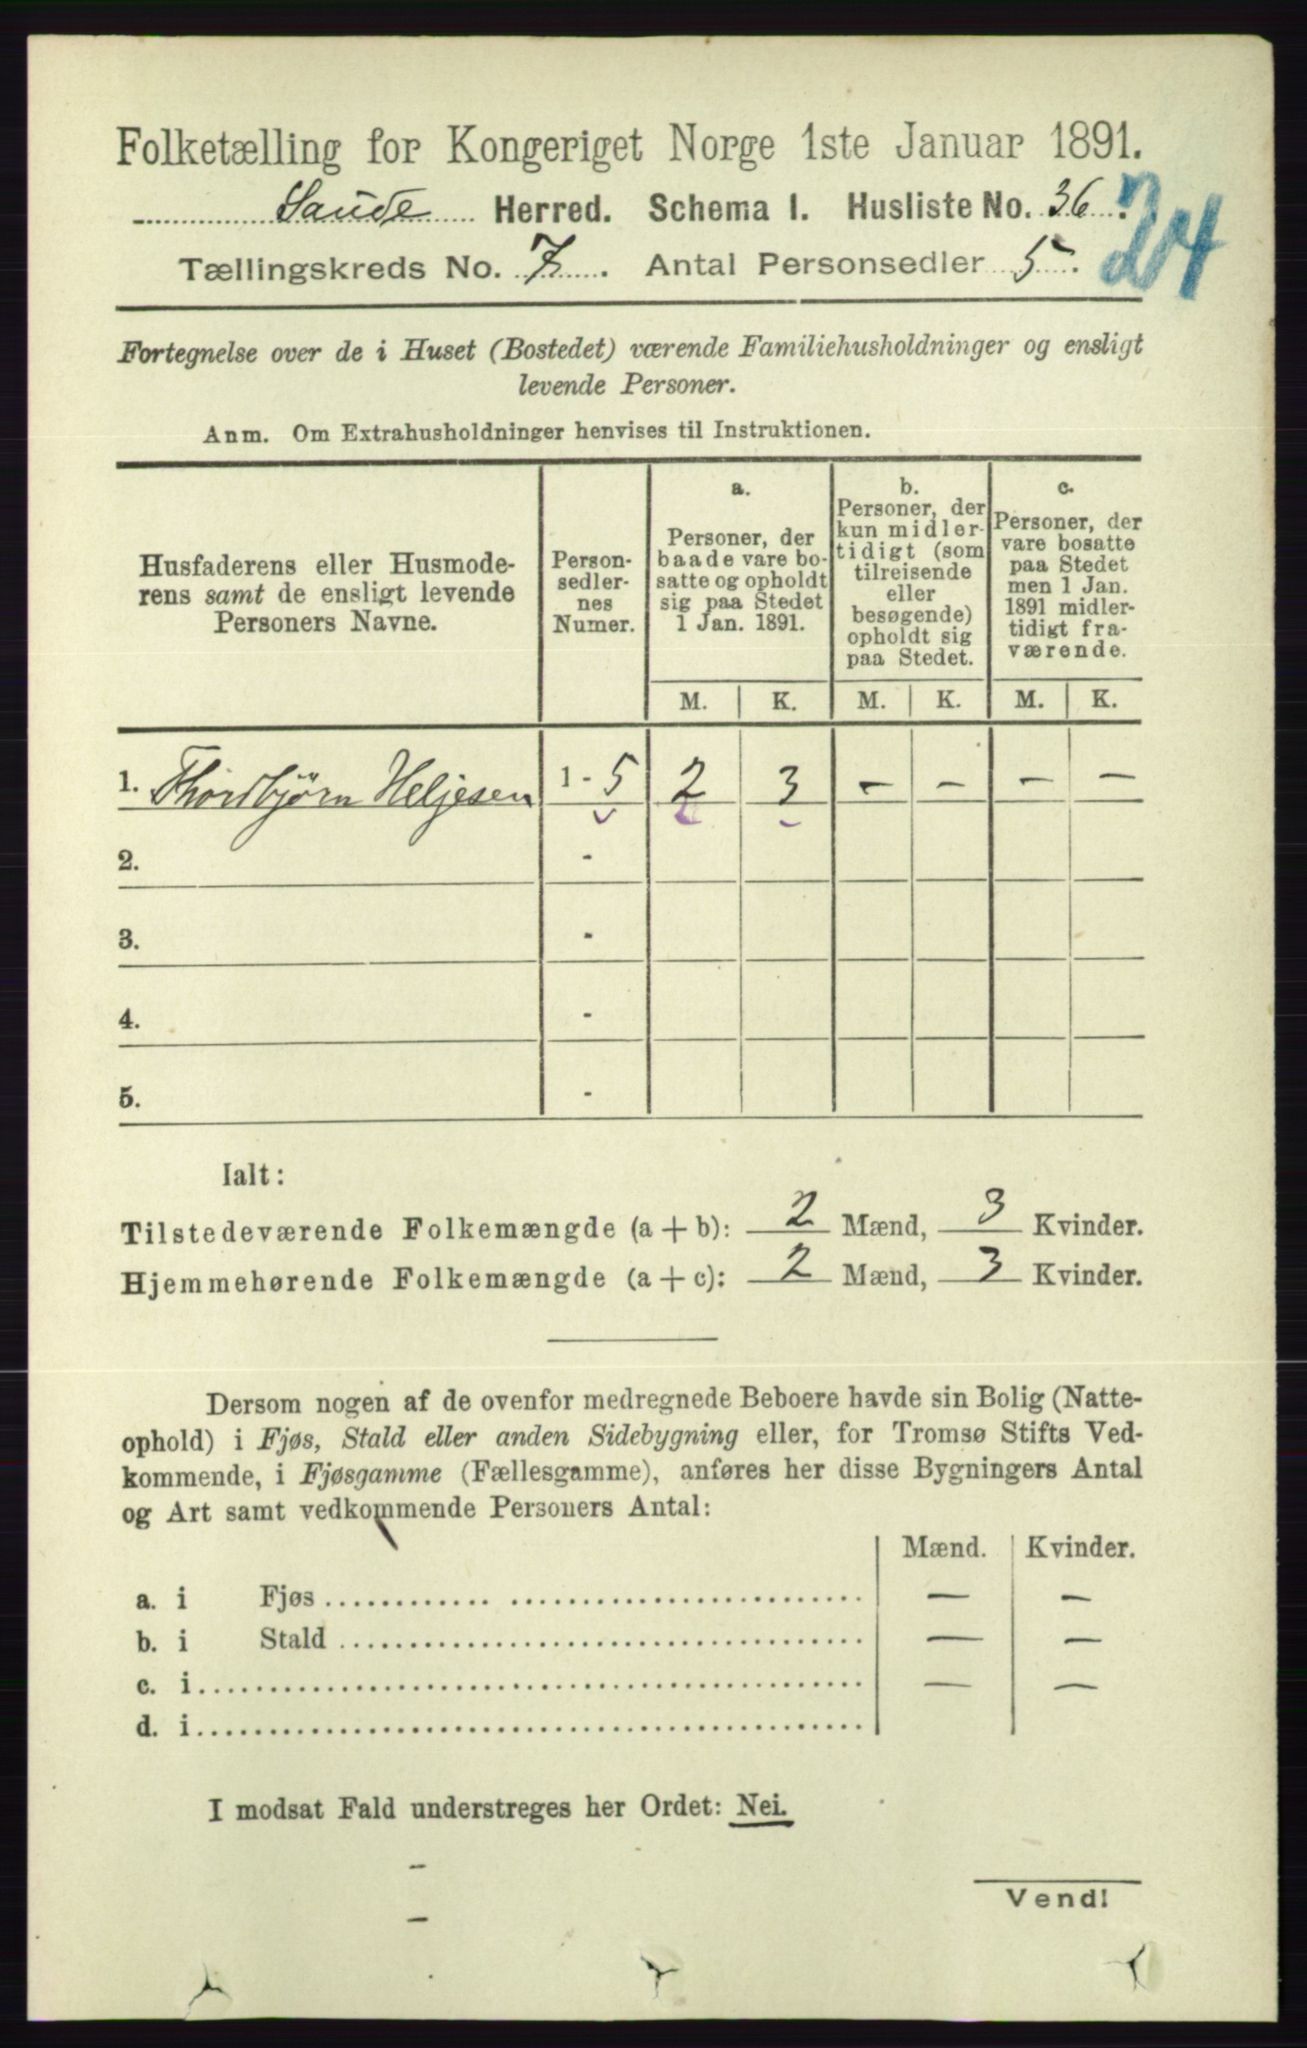 Folketælling for Kongeriget Norge 1ste Januar 1891.
Saude Herred. Schema I. Husliste No. 36.
24
Tællingskreds No. 7. Antal Personsedler 5.
Fortegnelse over de i Huset (Bostedet) værende Familiehusholdninger og ensligt
levende Personer.
Anm. Om Extrahusholdninger henvises til Instruktionen.
Husfaderens eller Husmode-
rens samt de ensligt levende
Personers Navne.
Person-
sedler-
nes
Numer.
a.
Personer, der
baade vare bo-
satte og opholdt
sig paa Stedet
1 Jan. 1891.
b.
Personer, der
kun midler-
tidigt (som
tilreisende
eller
besøgende)
opholdt sig
paa Stedet.
c.
Personer, der
vare bosatte
paa Stedet
men 1 Jan.
1891 midler-
tidigt fra-
værende.
M. K. M. K. M. K.
1. Thorbjørn Heljesen 1 - 5 2 3 - - - -
2. -
3. -
4. -
5. -
Ialt:
Tilstedeværende Folkemængde (a + b): 2 Mænd, 3 Kvinder.
Hjemmehørende Folkemængde (a + c): 2 Mænd, 3 Kvinder.
Dersom nogen af de ovenfor medregnede Beboere havde sin Bolig (Natte-
ophold) i Fjøs, Stald eller anden Sidebygning eller, for Tromsø Stifts Ved-
kommende, i Fjøsgamme (Fællesgamme), anføres her disse Bygningers Antal
og Art samt vedkommende Personers Antal:
Mænd. Kvinder.
a. i Fjøs — —
b. i Stald — —
c. i — —
d. i
I modsat Fald understreges her Ordet: Nei.
Vend!